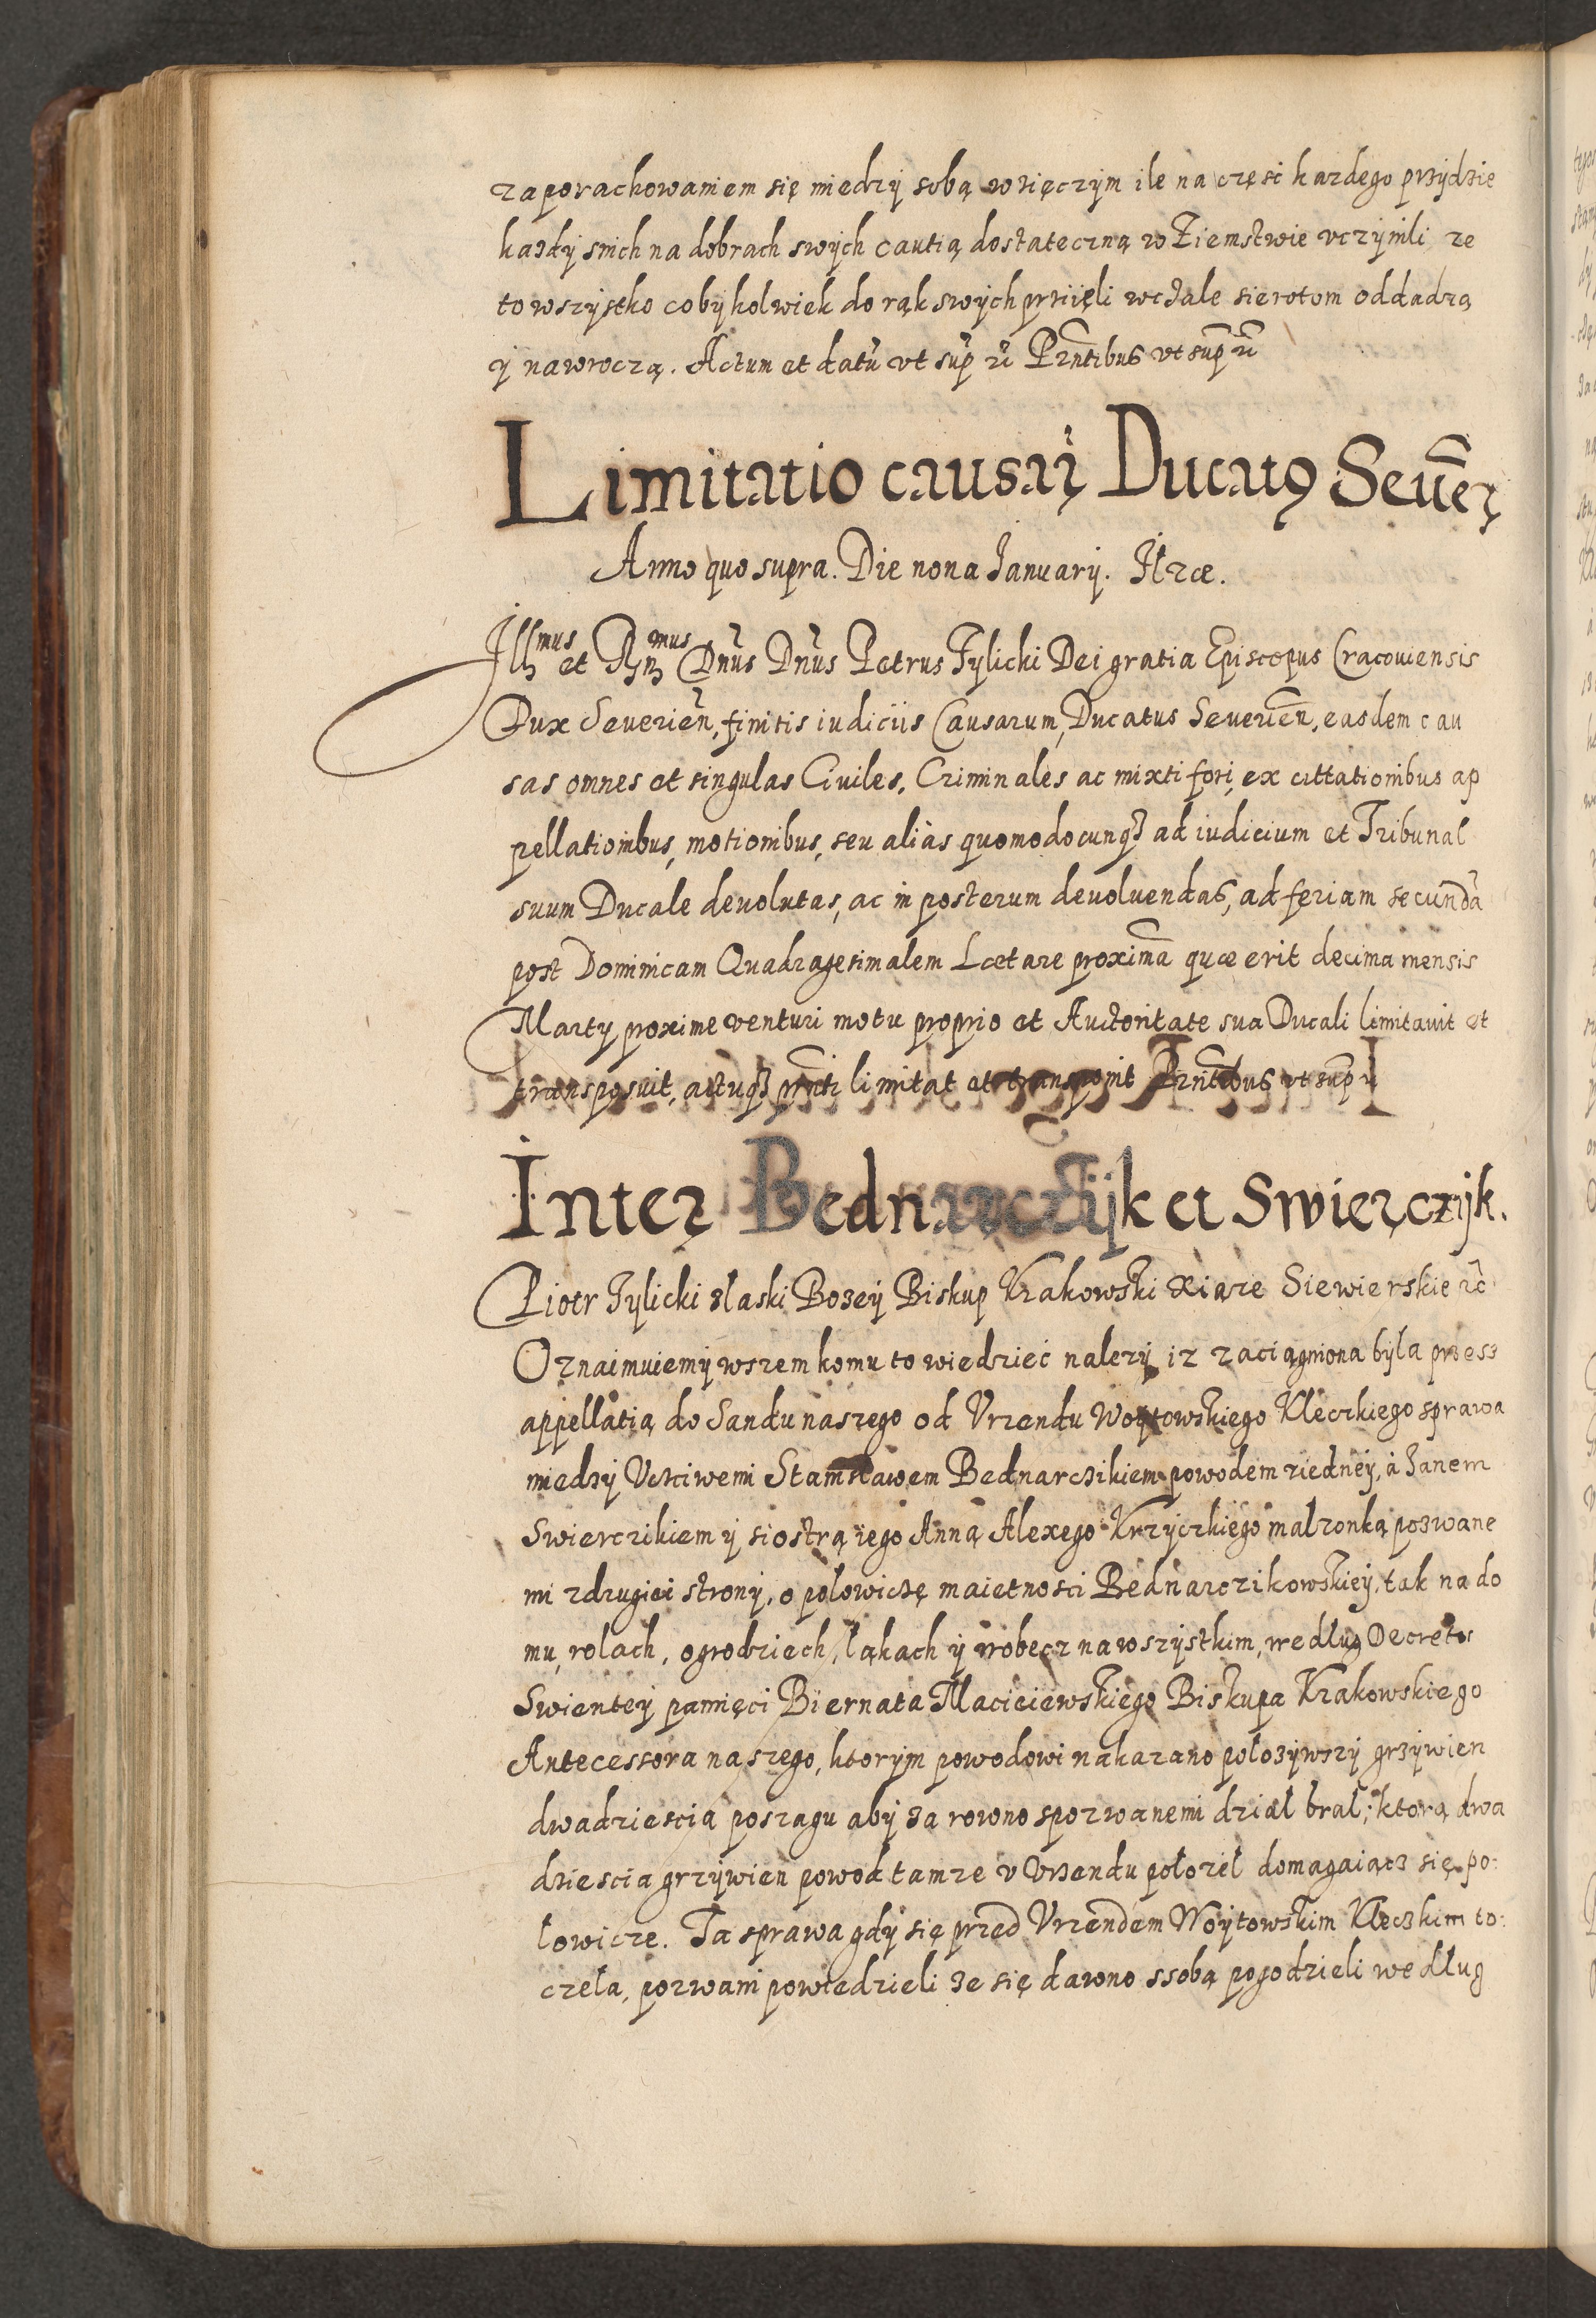 zaporachowaniem się miedzÿ sobą wzięczÿm ile na częsc kazdego przÿdzie
kazdÿ snich na dobrach swÿch cautią dostateczną w Ziemstwie vczÿnili ze
to wszÿstko cobÿkolwiek do rąk swÿch przÿięli wczale sierotom oddadzą
ÿ nawroczą. Actum et datũ vt sup̃ rc̃ Pr̃ntibus vt sup̃ rc̃
Limitatio causaꝝ Ducatꝯ Seueꝝ
Anno quo supra. Die nona Januarÿ. Jłzæ.
Jllmus et Rṇmus Dñus Dñus Petrus Tylicki Dei gratia Episcopus Cracouiensis
Dux Seuerieñ, finitis iudiciis Causarum, Ducatus Seuerieñ, easdem cau
sas omnes et singulas Ciuiles, Criminales ac mixti fori, ex cittationibus ap
pellationibus, motionibus, seu alias quomodocunqꝫ ad iudicium et Tribunal
suum Ducale deuolutas, ac in posterum deuoluendas, ad feriam secundã
post Dominicam Quadragesimalem Lætare proximã quæ erit decima mensis
Martÿ proxime venturi motu proprio et Auctoritate sua Ducali limitauit et
transposuit, actuqꝫ pñti limitat et transponit Prñtibus vt sup̃ rc̃
Inter Bednarczÿk et Swierczÿk.
Piotr Tylicki zlaski Bozeÿ Biskup Krakowski Xiąze Siewierskie rc̃
Oznaimuiemÿ wszem komu to wiedziec nalezÿ, iz zaciągniona bÿla przesz
appellatią do Sandu naszego od Vrzendu Woÿtowskiego Kleczkiego sprawa
miedzÿ Vcsciwemi Stanisławem Bednarczikiem powodem ziedneÿ, à Janem
Swierczikiem ÿ siostrą iego Anną Alexego Krzÿczkiego malzonką pozwane
mi zdrugiei stronÿ, o polowiczę maietnosci Bednarczikowskieÿ, tak na do
mu, rolach, ogrodziech, ląkach ÿ wobecz na wszÿstkim, według Decretu
Swienteÿ pamięci Biernata Macieiewskiego Biskupa Krakowskiego
Antecessora naszego, ktorÿm powodowi nakazano połozÿwszÿ grzÿwien
dwadziescia poszagu abÿ za rowno spozwanemi dział brał; ktorą dwa
dziescia grzÿwien powod tamze v Vrzendu połozeł domagaiącz się po:
lowicze. Ta sprawa gdÿ się przed Vrzendem Woÿtowskim Kleczkim to:
czeła, pozwani powiedzieli ze się dawno ssobą pogodzieli według